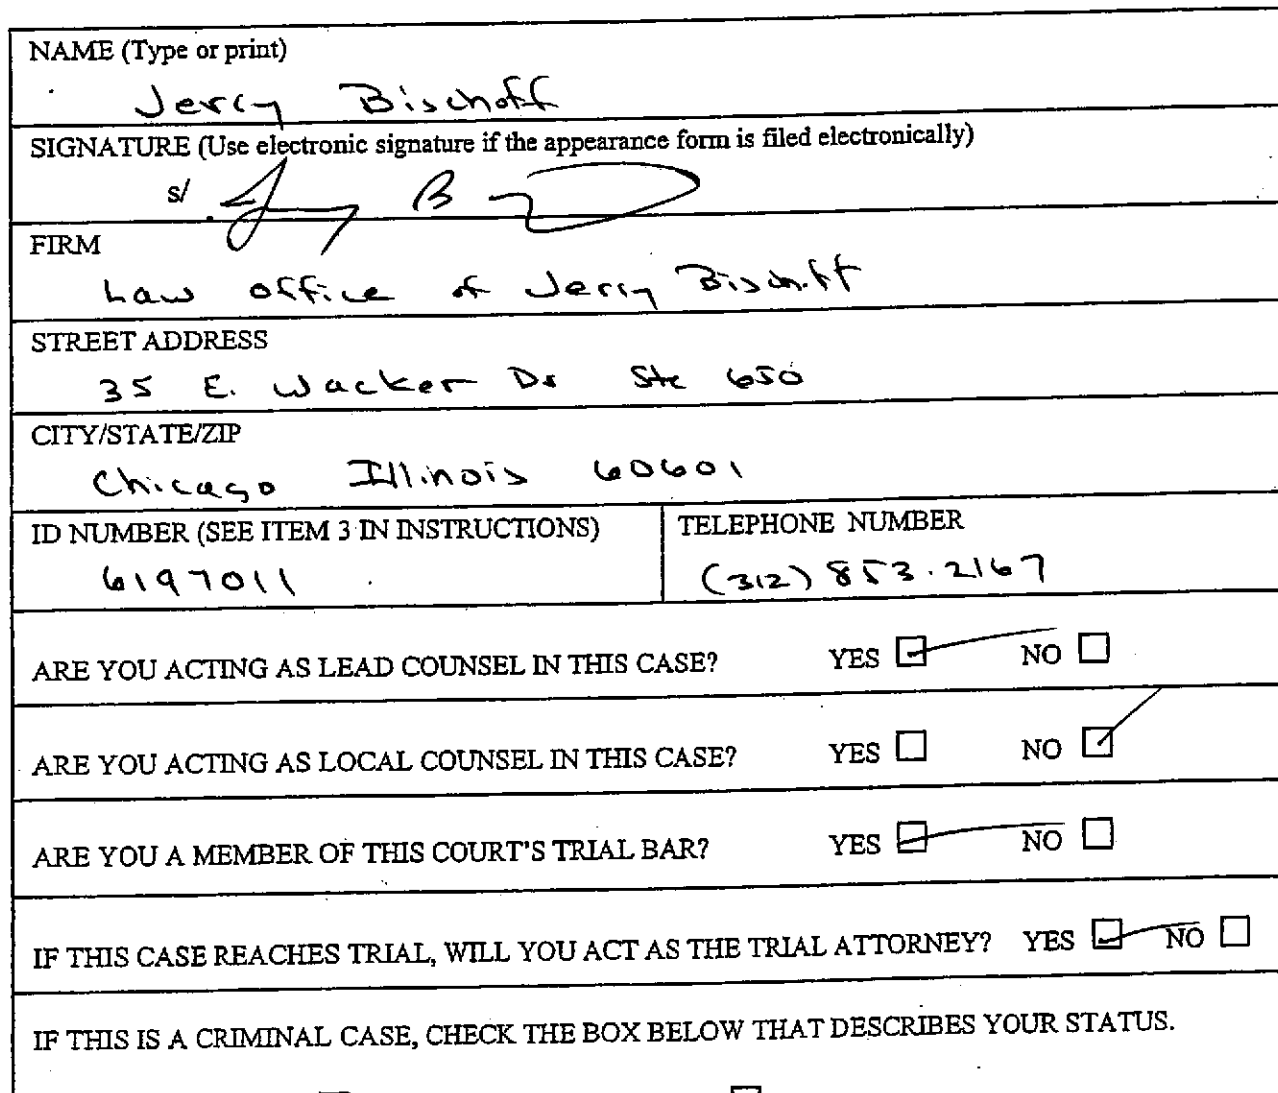 NAME (Type or print)
Jerry Bischoff
SIGNATURE (Use electronic signature if the appearance form is filed electronically)
s/
FIRM
Law office of Jerry Bischoff
STREET ADDRESS
35 E. Wacker Dr Ste 650
CITY/STATE/ZIP
Chicago Illinois 60601
ID NUMBER (SEE ITEM 3 IN INSTRUCTIONS) TELEPHONE NUMBER
6197011 (312) 853.2167
ARE YOU ACTING AS LEAD COUNSEL IN THIS CASE? YES NO
ARE YOU ACTING AS LOCAL COUNSEL IN THIS CASE? YES NO
ARE YOU A MEMBER OF THIS COURT'S TRIAL BAR? YES NO
IF THIS CASE REACHES TRIAL, WILL YOU ACT AS THE TRIAL ATTORNEY? YES NO
IF THIS IS A CRIMINAL CASE, CHECK THE BOX BELOW THAT DESCRIBES YOUR STATUS.